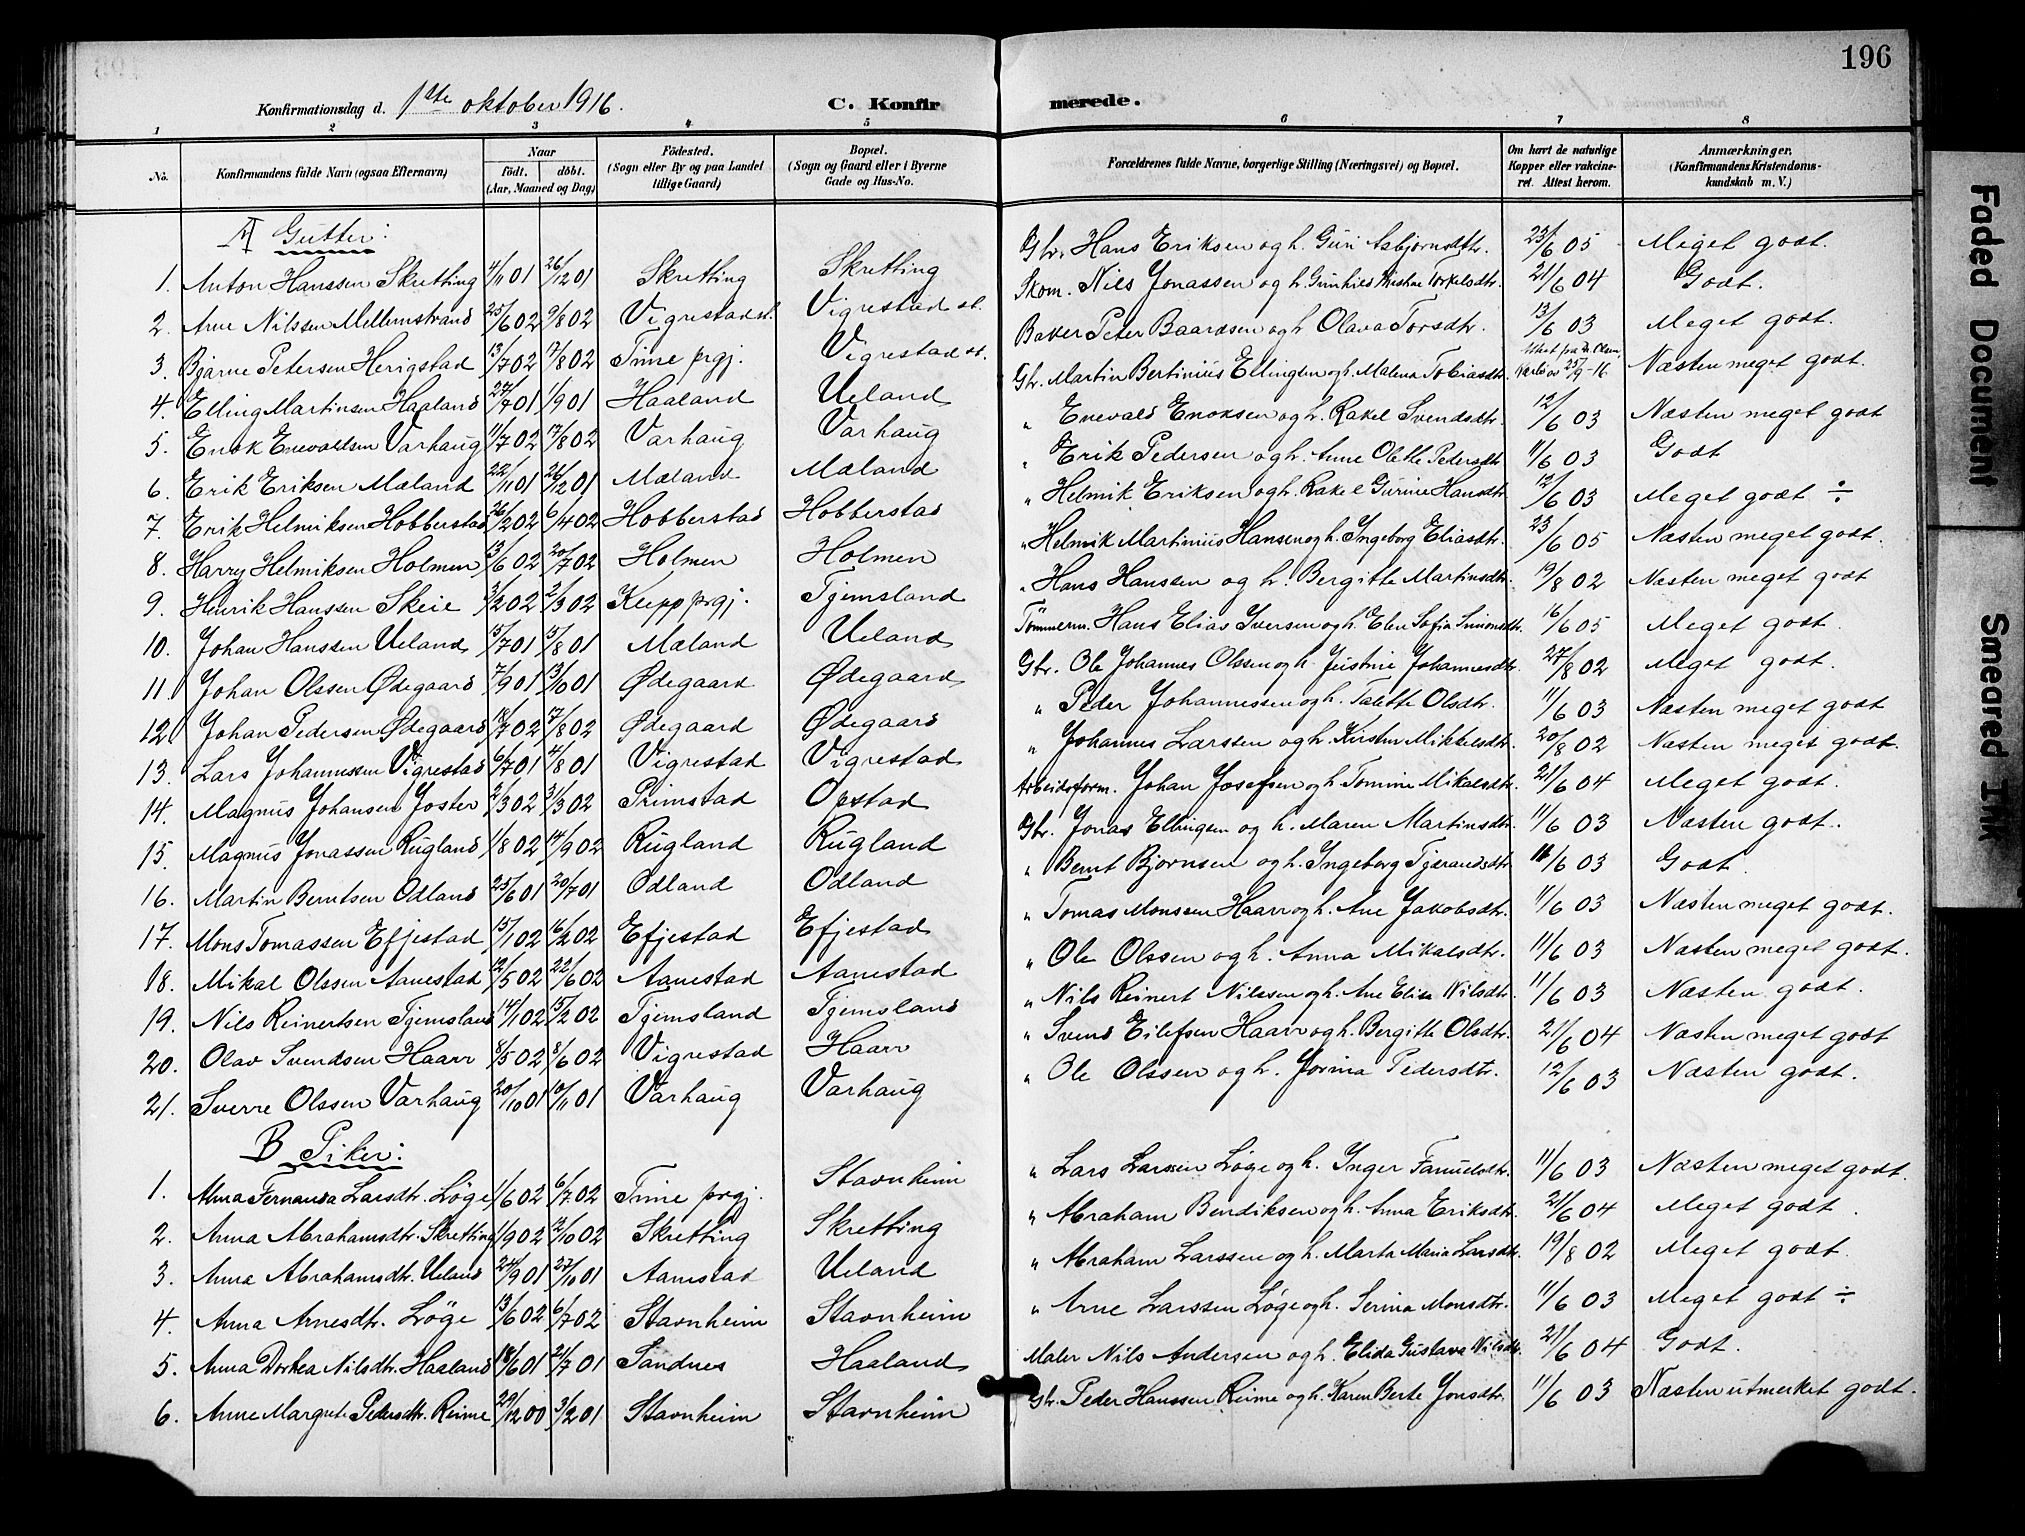 196
Konfirmationsdag d. 1ste oktober 1916. C. Konfirmerede.
1 2 3 4 5 6 7 8
No. Konfirmandens fulde Navn (ogsaa Efternavn) Naar født. døbt. (Aar, Maaned og Dag) Födested. (Sogn eller By og paa Landet tillige Gaard) Bopæl. (Sogn og Gaard eller i Byerne Gade og Hus-No. Forældrenes fulde Navne, borgerlige Stilling (Næringsvei) og Bopæl. Om havt de naturlige Kopper eller vakcineret. Attest herom. Anmærkninger. (Konfirmandens Kristendomskundskab m. V.)
A Gutter:
1. Anton Hanssen Skretting 4/11 01 26/12 01 Skretting Skretting Gbr. Hans Eriksen og h. Guri Asbjørnsdtr. 23/6 05 Meget godt.
2. Arne Nilssen Mellemstrand 25/6 02 9/8 02 Vigrestad st. Vigrestad st. Skom. Nils Jonassen og h. Gunhild Kristine Torkelsdtr. 21/6 04 Godt.
3. Bjarne Petersen Herigstad 13/7 02 17/8 02 Time prgj. Vigrestad st. Baker Peter Baardsen og h. Olava Torsdtr. 13/6 03 Meget godt.
4. Elling Martinsen Haaland 27/7 01 1/9 01 Haaland Ueland Gbr. Martin Bertinius Ellingsen og h. Malena Tobiasdtr. Attest fra Dr. Olsen, 25/9-16 Næsten meget godt.
5. Enok Enevaldsen Varhaug 11/7 02 17/8 02 Varhaug Varhaug " Enevald Enoksen og h. Rakel Svendsdtr. 12/6 03 Næsten meget godt
6. Erik Eriksen Mæland 22/11 01 26/12 01 Mæland Mæland " Erik Pedersen og h. Anne Olette Pedersdtr 11/6 03 Godt
7. Erik Helmiksen Hobberstad 26/2 02 6/4 02 Hobberstad Hobberstad " Helmik Eriksen og h. Rakel Gurine Hansdtr 12/6 03 Meget godt ÷
8. Harry Helmiksen Holmen 13/6 02 20/7 02 Holmen Holmen " Helmik Martinius Hansen og h. Ingeborg Eliasdtr. 23/6 05 Næsten meget godt.
9. Henrik Hanssen Skeie 3/2 02 2/3 02 Klepp prgj. Tjemsland " Hans Hanssen og h. Bergitte Martinsdtr. 19/8 02 Næsten meget godt
10. Johan Hanssen Ueland 15/7 01 15/8 01 Mæland Ueland Tømmerm. Hans Elias Iversen og h. Elen Sofia Simonsdtr. 16/6 05 Meget godt.
11. Johan Olssen Ødegaard 7/9 01 13/10 01 Ødegaard Ødegaard Gbr. Ole Johannes Olssen og h. Justine Johannesdtr. 27/8 02 Meget godt.
12. Johan Pedersen Ødegaard 18/7 02 17/8 02 Ødegaard Ødegaard " Peder Johannessen og h. Talette Olsdtr. 11/6 03 Næsten meget godt
13. Lars Johannessen Vigrestad 6/7 01 4/8 01 Vigrestad Vigrestad " Johannes Larssen og h. Kirsten Mikkelsdtr. 20/8 02 Næsten meget godt.
14. Magnus Johansen Joster 2/3 02 31/3 02 Primstad Opstad Arbeidsform. Johan Josefsen og h. Tomine Mikalsdtr. 21/6 04 Meget godt.
15. Magnus Jonassen Rugland 1/8 02 14/9 02 Rugland Rugland Gbr. Jonas Ellingsen og h. Maren Martinsdtr. 11/6 03 Næsten godt.
16. Martin Berntsen Odland 25/6 01 20/7 01 Odland Odland " Bernt Bjørnsen og h. Ingeborg Tjærandsdtr 11/6 03 Godt.
17. Mons Tomassen Efjestad 15/1 02 16/2 02 Efjestad Efjestad " Tomas Monssen Haarr og h. Ane Jakobsdtr. 11/6 03 Næsten meget godt.
18. Mikal Olssen Aanestad 12/5 02 22/6 02 Aanestad Aanestad " Ole Olssen og h. Anna Mikalsdtr. 11/6 03 Næsten meget godt.
19. Nils Reinertsen Tjemsland 14/1 02 15/2 02 Tjemsland Tjemsland " Nils Reinert Nilssen og h. Ane Elisa Nilsdtr. 11/6 03 Næsten godt.
20. Olav Svendsen Haarr 8/5 02 8/6 02 Vigrestad Haarr " Svend Eilefsen Haarr og h. Bergitte Olsdtr. 21/6 04 Næsten meget godt
21. Sverre Olssen Varhaug 20/10 01 10/11 01 Varhaug Varhaug " Ole Olssen og h. Jorina Pedersdtr. 12/6 03 Næsten godt.
B Piker:
1. Alma Fernanda Larsdtr. Løge 1/6 02 6/7 02 Time prgj. Stavnheim " Lars Larssen Løge og h. Inger Tanuelsdtr. 11/6 03 Næsten meget godt.
2. Anna Abrahamsdtr. Skretting 1/9 02 12/10 02 Skretting Skretting " Abraham Bendiksen og h. Anna Eriksdtr. 21/6 04 Meget godt.
3. Anna Abrahamsdtr. Ueland 24/9 01 27/10 01 Aanestad Ueland " Abraham Larssen og h. Marta Maria Larsdtr. 19/8 02 Meget godt.
4. Anna Arnesdtr. Løge 13/6 02 6/7 02 Stavnheim Stavnheim " Arne Larssen Løge og h. Serina Monsdtr. 11/6 03 Meget godt ÷
5. Anna Dorthea Nilsdtr. Haaland 18/6 01 21/7 01 Sandnes Haaland Maler Nils Andersen og h. Elida Gustava Nilsdtr. 21/6 04 Godt.
6. Anne Margrete Pedersdtr. Reime 29/12 00 3/2 01 Stavnheim Stavnheim Gbr. Peder Hanssen Reime og h. Karen Berte Jonsdtr. 11/6 03 Næsten utmerket godt.
Faded Document
Smeared Ink